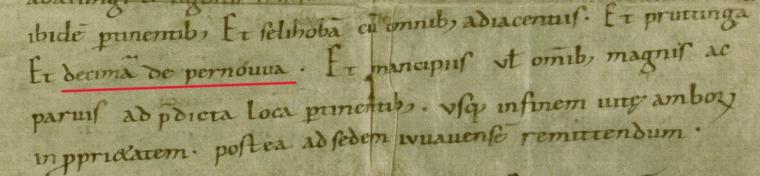 ibidē ptinentib; Et selihobā cū omnib; adiacentiis. Et pruttinga
Et decimā de pernouua. Et mancipiis ul omīb; magnis ac
paruis ad p̄dicta loca ptinentib;. usq; in finem uitę amboꝝ
in pprietatem. postea ad sedem iuuauensē remittendum.